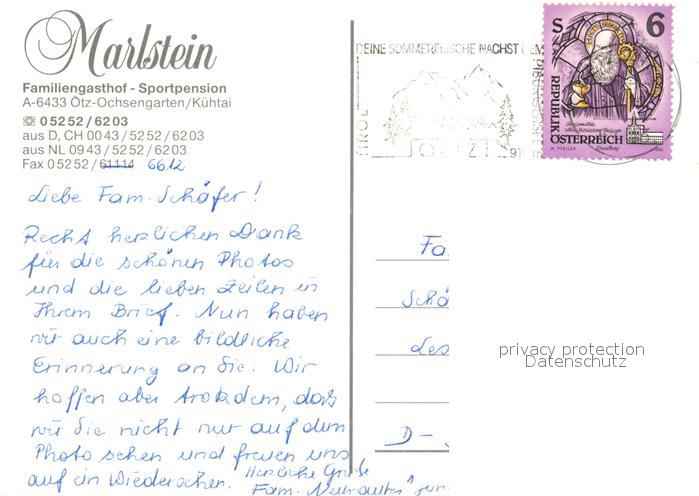 Marlstein
Familiengasthof - Sportpension
A-6433 Ötz-Ochsengarten/Kühtai
☎ 0 52 52 / 62 03
aus D, CH 00 43 / 52 52 / 62 03
aus NL 09 43 / 52 52 / 62 03
Fax 0 52 52 / 61114 6612
Liebe Fam. Schäfer!
Recht herzlichen Dank
für die schönen Photos
und die lieben Zeilen in
Ihrem Brief. Nun haben
wir auch eine bildliche
Erinnerung an Sie. Wir
hoffen aber trotzdem, daß
wir Sie nicht nur auf dem
Photo sehen und freuen uns
auf ein Wiedersehen. Herzliche Grüße
Fam.
DEINE SOMMERFRISCHE NÄCHST DEM
TIROL
OETZ
S 6
REPUBLIK
ÖSTERREICH
Fa
Schä
Les
D-
privacy protection
Datenschutz